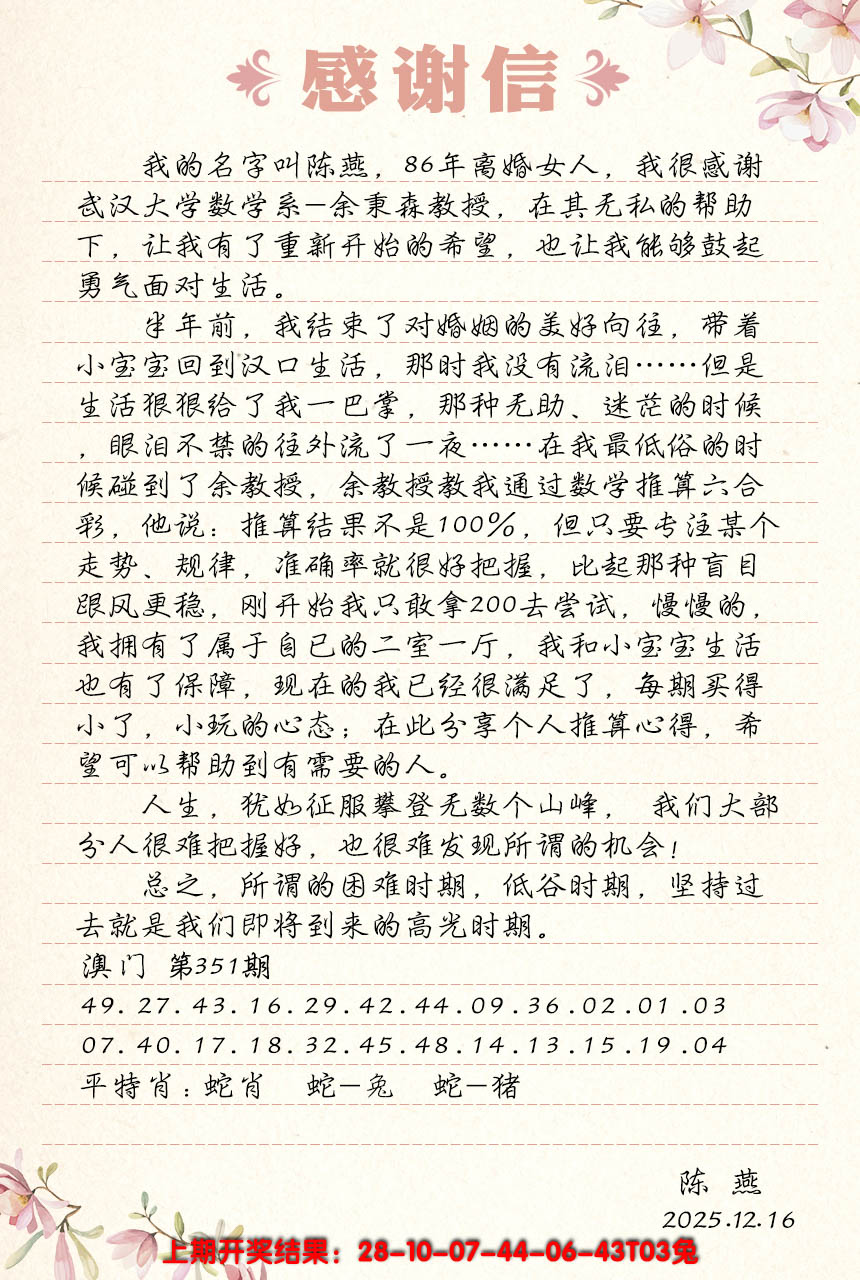 感谢信
我的名字叫陈燕，86年离婚女人，我很感谢
武汉大学数学系—余秉森教授，在其无私的帮助
下，让我有了重新开始的希望，也让我能够鼓起
勇气面对生活。
半年前，我结束了对婚姻的美好向往，带着
小宝宝回到汉口生活，那时我没有流泪……但是
生活狠狠给了我一巴掌，那种无助、迷茫的时候
，眼泪不禁的往外流了一夜……在我最低俗的时
候碰到了余教授，余教授教我通过数学推算六合
彩，他说：推算结果不是100%，但只要专注某个
走势、规律，准确率就很好把握，比起那种盲目
跟风更稳，刚开始我只敢拿200去尝试，慢慢的，
我拥有了属于自已的二室一厅，我和小宝宝生活
也有了保障，现在的我已经很满足了，每期买得
小了，小玩的心态；在此分享个人推算心得，希
望可以帮助到有需要的人。
人生，犹如征服攀登无数个山峰， 我们大部
分人很难把握好，也很难发现所谓的机会！
总之，所谓的困难时期，低谷时期，坚持过
去就是我们即将到来的高光时期。
澳门 第351期
49.27.43.16.29.42.44.09.36.02.01.03
07.40.17.18.32.45.48.14.13.15.19.04
平特肖：蛇肖 蛇—兔 蛇—猪
陈 燕
2025.12.16
上期开奖结果：28-10-07-44-06-43T03兔